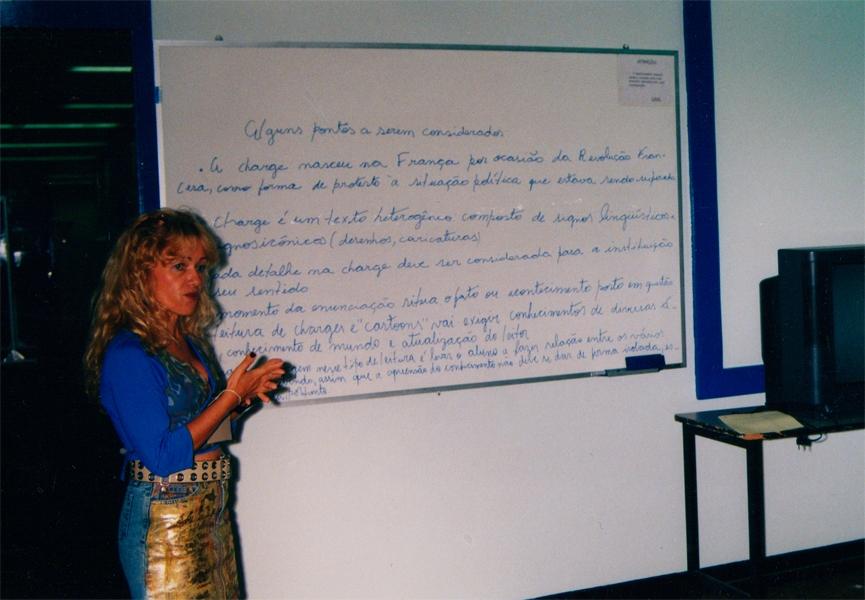 ATENÇÃO
Alguns pontos a serem considerados
. A charge nasceu na França por ocasião da Revolução Fran-
cesa, como forma de protesto à situação política que estava sendo
Charge é um texto heterogêneo composto de signos lingüísticos e
signos icônicos (desenhos, caricaturas)
detalhe na charge deve ser considerada para a instituição
seu sentido
momento da enunciação situa o fato ou acontecimento posto em questão
leitura de charges e "cartoons" vai exigir conhecimentos de diversas
conhecimento de mundo e atualização do leitor
nesse tipo de leitura é levar o aluno a fazer relação entre os vários
assim que a apreensão do conhecimento não deve se dar de forma isolada,